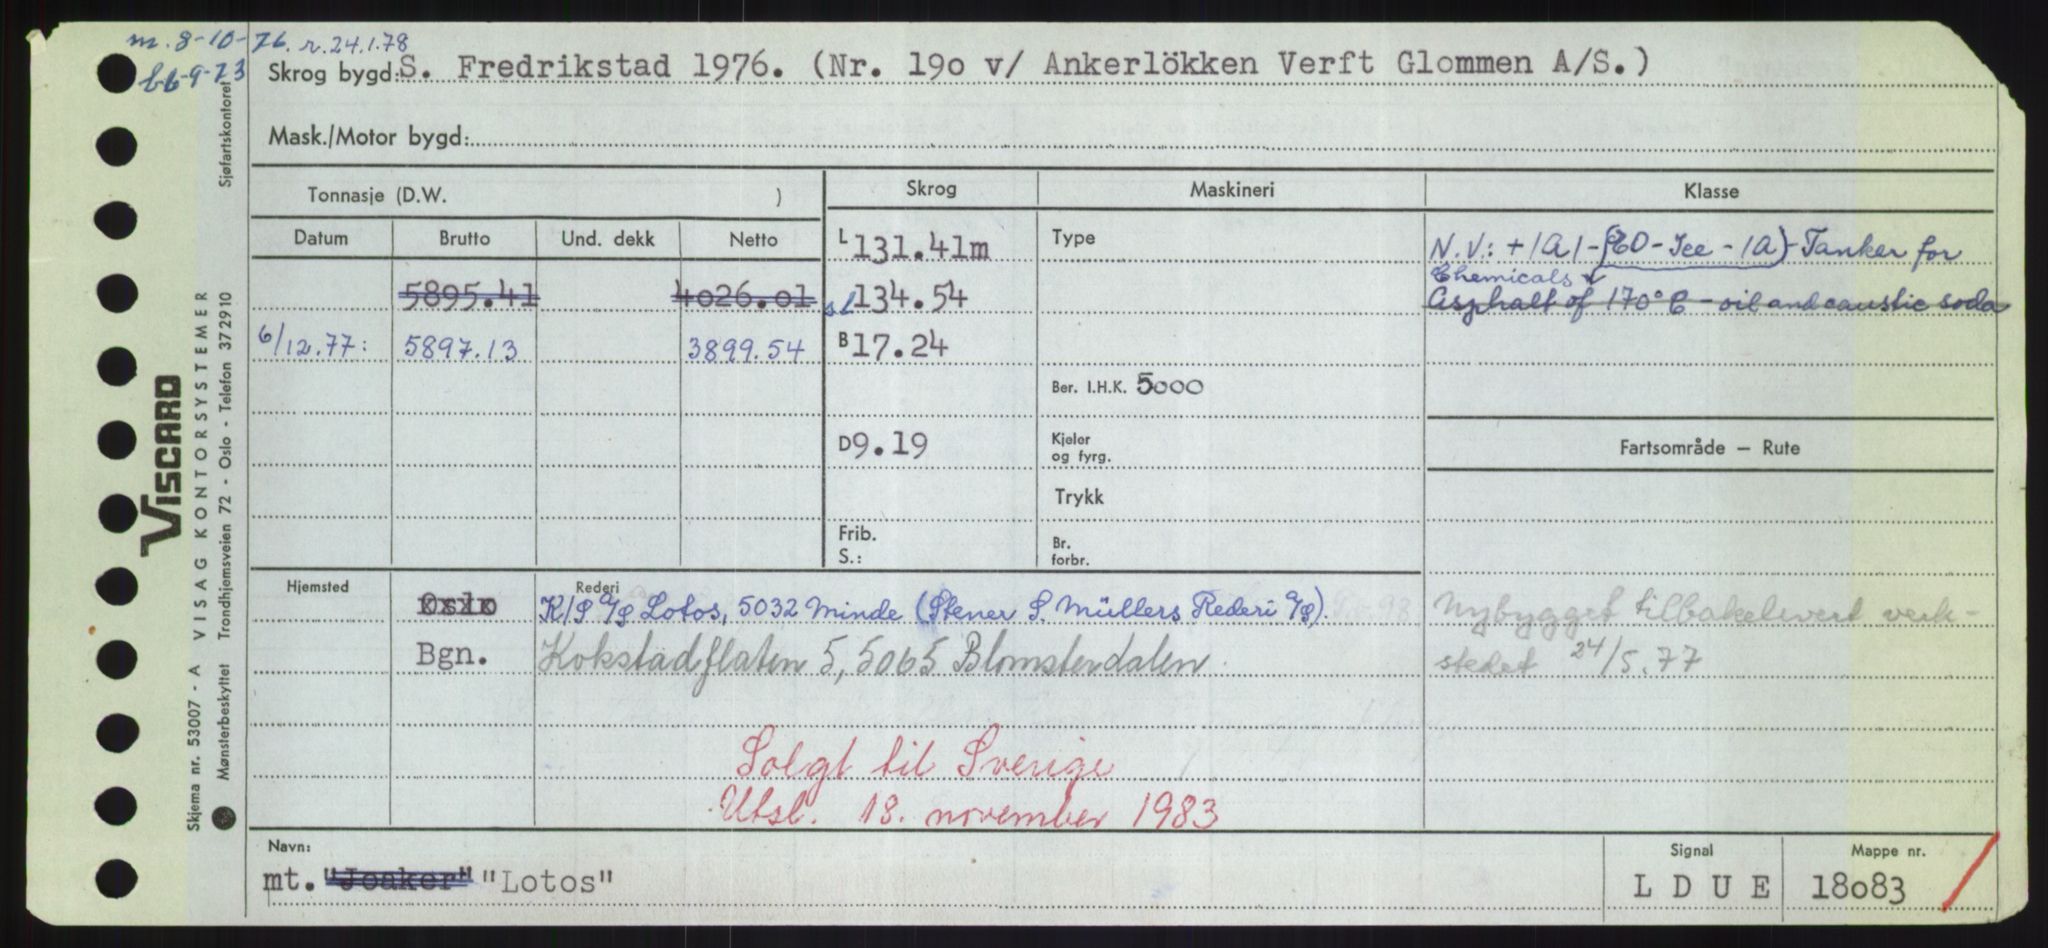 m. 8-10-76. r. 24.1.78
b6-9-73
Skrog bygd: S. Fredrikstad 1976. (Nr. 19o v/ Ankerlökken Verft Glommen A/S.)
Mask./Motor bygd:
Tonnasje (D.W. )
Skrog
Maskineri
Klasse
Datum
Brutto
Und. dekk
Netto
L 131.41m
Type
N.V.: +1A1-(EO-Ice-1A)-Tanker for
Chemicals
5895.41
4o26.o1
sl 134.54
Asphalt of 170°C - oil and caustic soda
6/12.77:
5897.13
3899.54
B 17.24
Ber. I.H.K. 5000
D 9.19
Kjeler
og fyrg.
Fartsområde — Rute
Trykk
Frib.
S.:
Br.
forbr.
Hjemsted
Rederi
Oslo
K/S A/S Lotos, 5032 Minde (Stener S. Müllers Rederi A/S).
Nybygget tilbakelevert verk-
Bgn.
Kokstadflaten 5, 5065 Blomsterdalen.
stedet 24/5.77
Solgt til Sverige
Utsl. 18. november 1983
Navn:
Signal
Mappe nr.
mt. "Joaker" "Lotos"
L D U E
18o83
VISCARD
Skjema nr. 53007 - A VISAG KONTORSYSTEMER
Mønsterbeskyttet Trondhjemsveien 72 - Oslo - Telefon 372910
Sjøfartskontoret